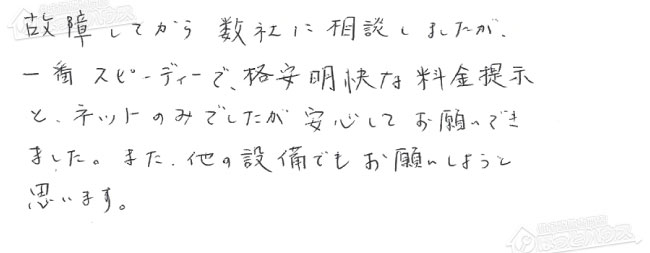 故障してから数社に相談しましたが、
一番スピーディーで、格安明快な料金提示
と、ネットのみでしたが安心してお願いでき
ました。また、他の設備でもお願いしようと
思います。